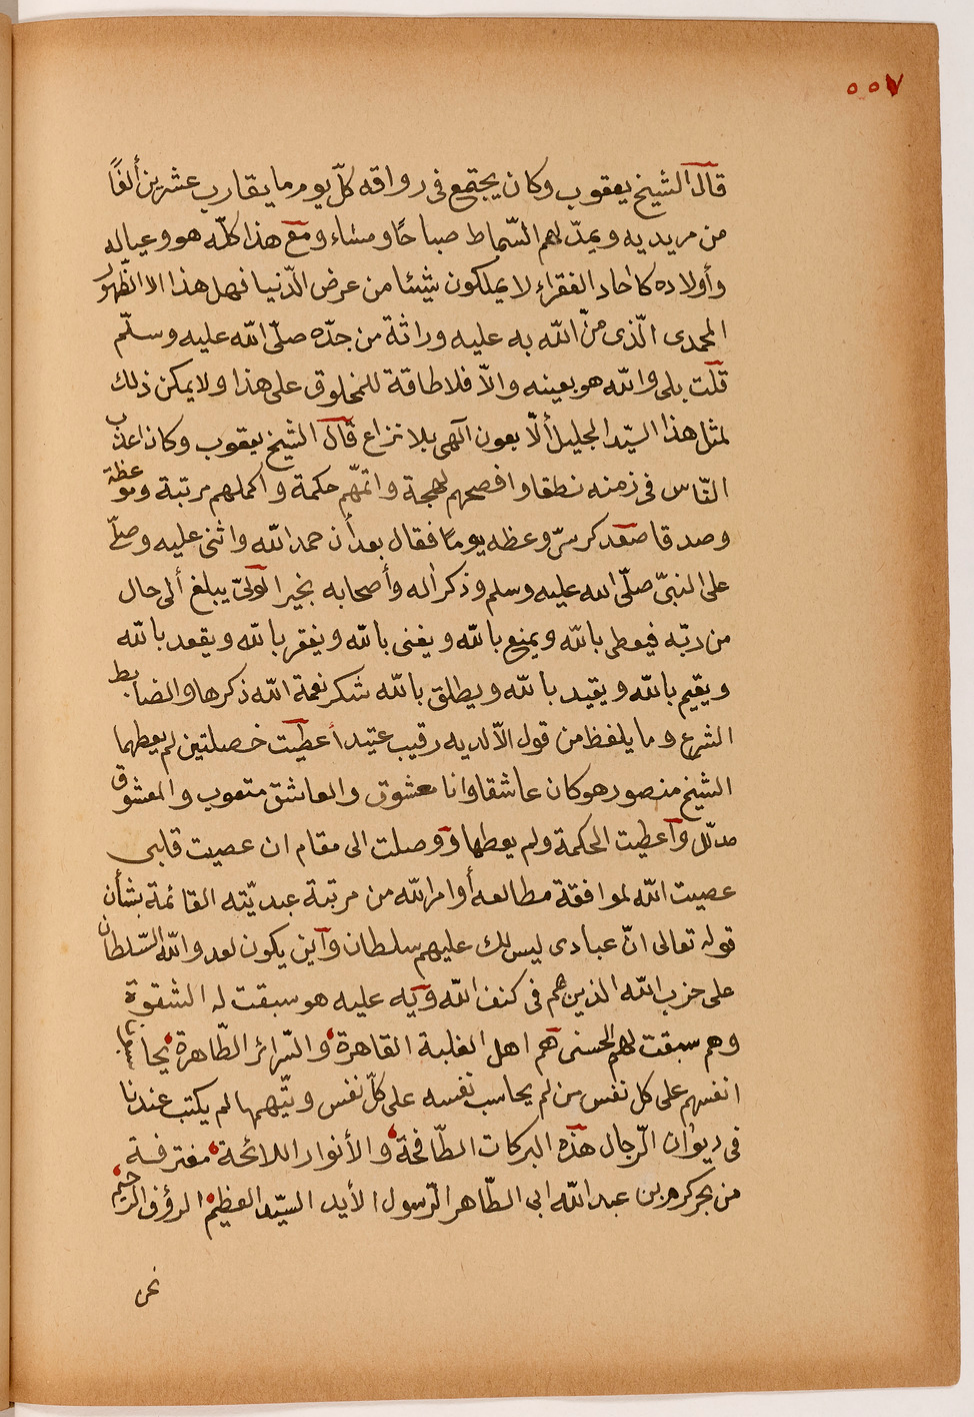 ٥٥٧
قال الشيخ يعقوب وكان يجتمع فى رواقه كلّ يوم ما يقارب عشرين ألفًا
من مريديه ويمدّ لهم السّماط صباحًا ومساء ومع هذا كلّه هو وعياله
وأولاده كاحاد الفقراء لا يملكون شيئا من عرض الدّنيا فهل هذا الا الظّهور
المحمدى الّذى منّ الله به عليه وراثة من جدّه صلّى الله عليه وسلّم
قلت بلى والله هو بعينه والاّ فلا طاقة للمخلوق على هذا ولا يمكن ذلك
لمثل هذا السيّد الجليل ألاّ بعون آلهى بلا نزاع قال الشيخ يعقوب وكان اعذب
النّاس فى زمنه نطقا وافصحهم لهجة واتمّهم حكمة واكملهم مرتبة وموعظة
وصدقا صعد كرسىّ وعظه يومًا فقال بعد أن حمد الله واثنى عليه وصلّى
على النبىّ صلّى الله عليه وسلم وذكر اله وأصحابه بخير الولىّ يبلغ ألى حال
من ربّه فيعطى بالله ويمنع بالله ويغنى بالله ويفقر بالله ويقعد بالله
ويقيم بالله ويقيد بالله ويطلق بالله شكر نعمة الله ذكرها والضابط
الشرع وما يلفظ من قول الاّ لديه رقيب عتيد أعطيت خصلتين لم يعطهما
الشيخ منصور هو كان عاشقا وانا معشوق والعاشق متعوب والمعشوق
مدلّل وأعطيت الحكمة ولم يعطها ووصلت الى مقام ان عصيت قلبى
عصيت الله لموافقة مطالعه أوامر الله من مرتبة عبديّته القائمة بشأن
قوله تعالى انّ عبادى ليس لك عليهم سلطان وآين يكون لعدو الله السّلطان
على حزب الله الذين هم فى كنف الله وآيه عليه هو سبقت له الشقوة
وهم سبقت لهم الحسنى هم اهل الغلبة القاهرة والسّرائر الطّاهرة يحاسبون
انفسهم على كل نفس من لم يحاسب نفسه على كلّ نفس ويتّهمها لم يكتب عندنا
فى ديوان الرّجال هذه البركات الطّافحة والأنوار اللائحة مغترفة
من بحر كرم بن عبد الله ابى الطّاهر الرّسول الأيد السيّد العظيم الرؤف الرّحيم
نحن